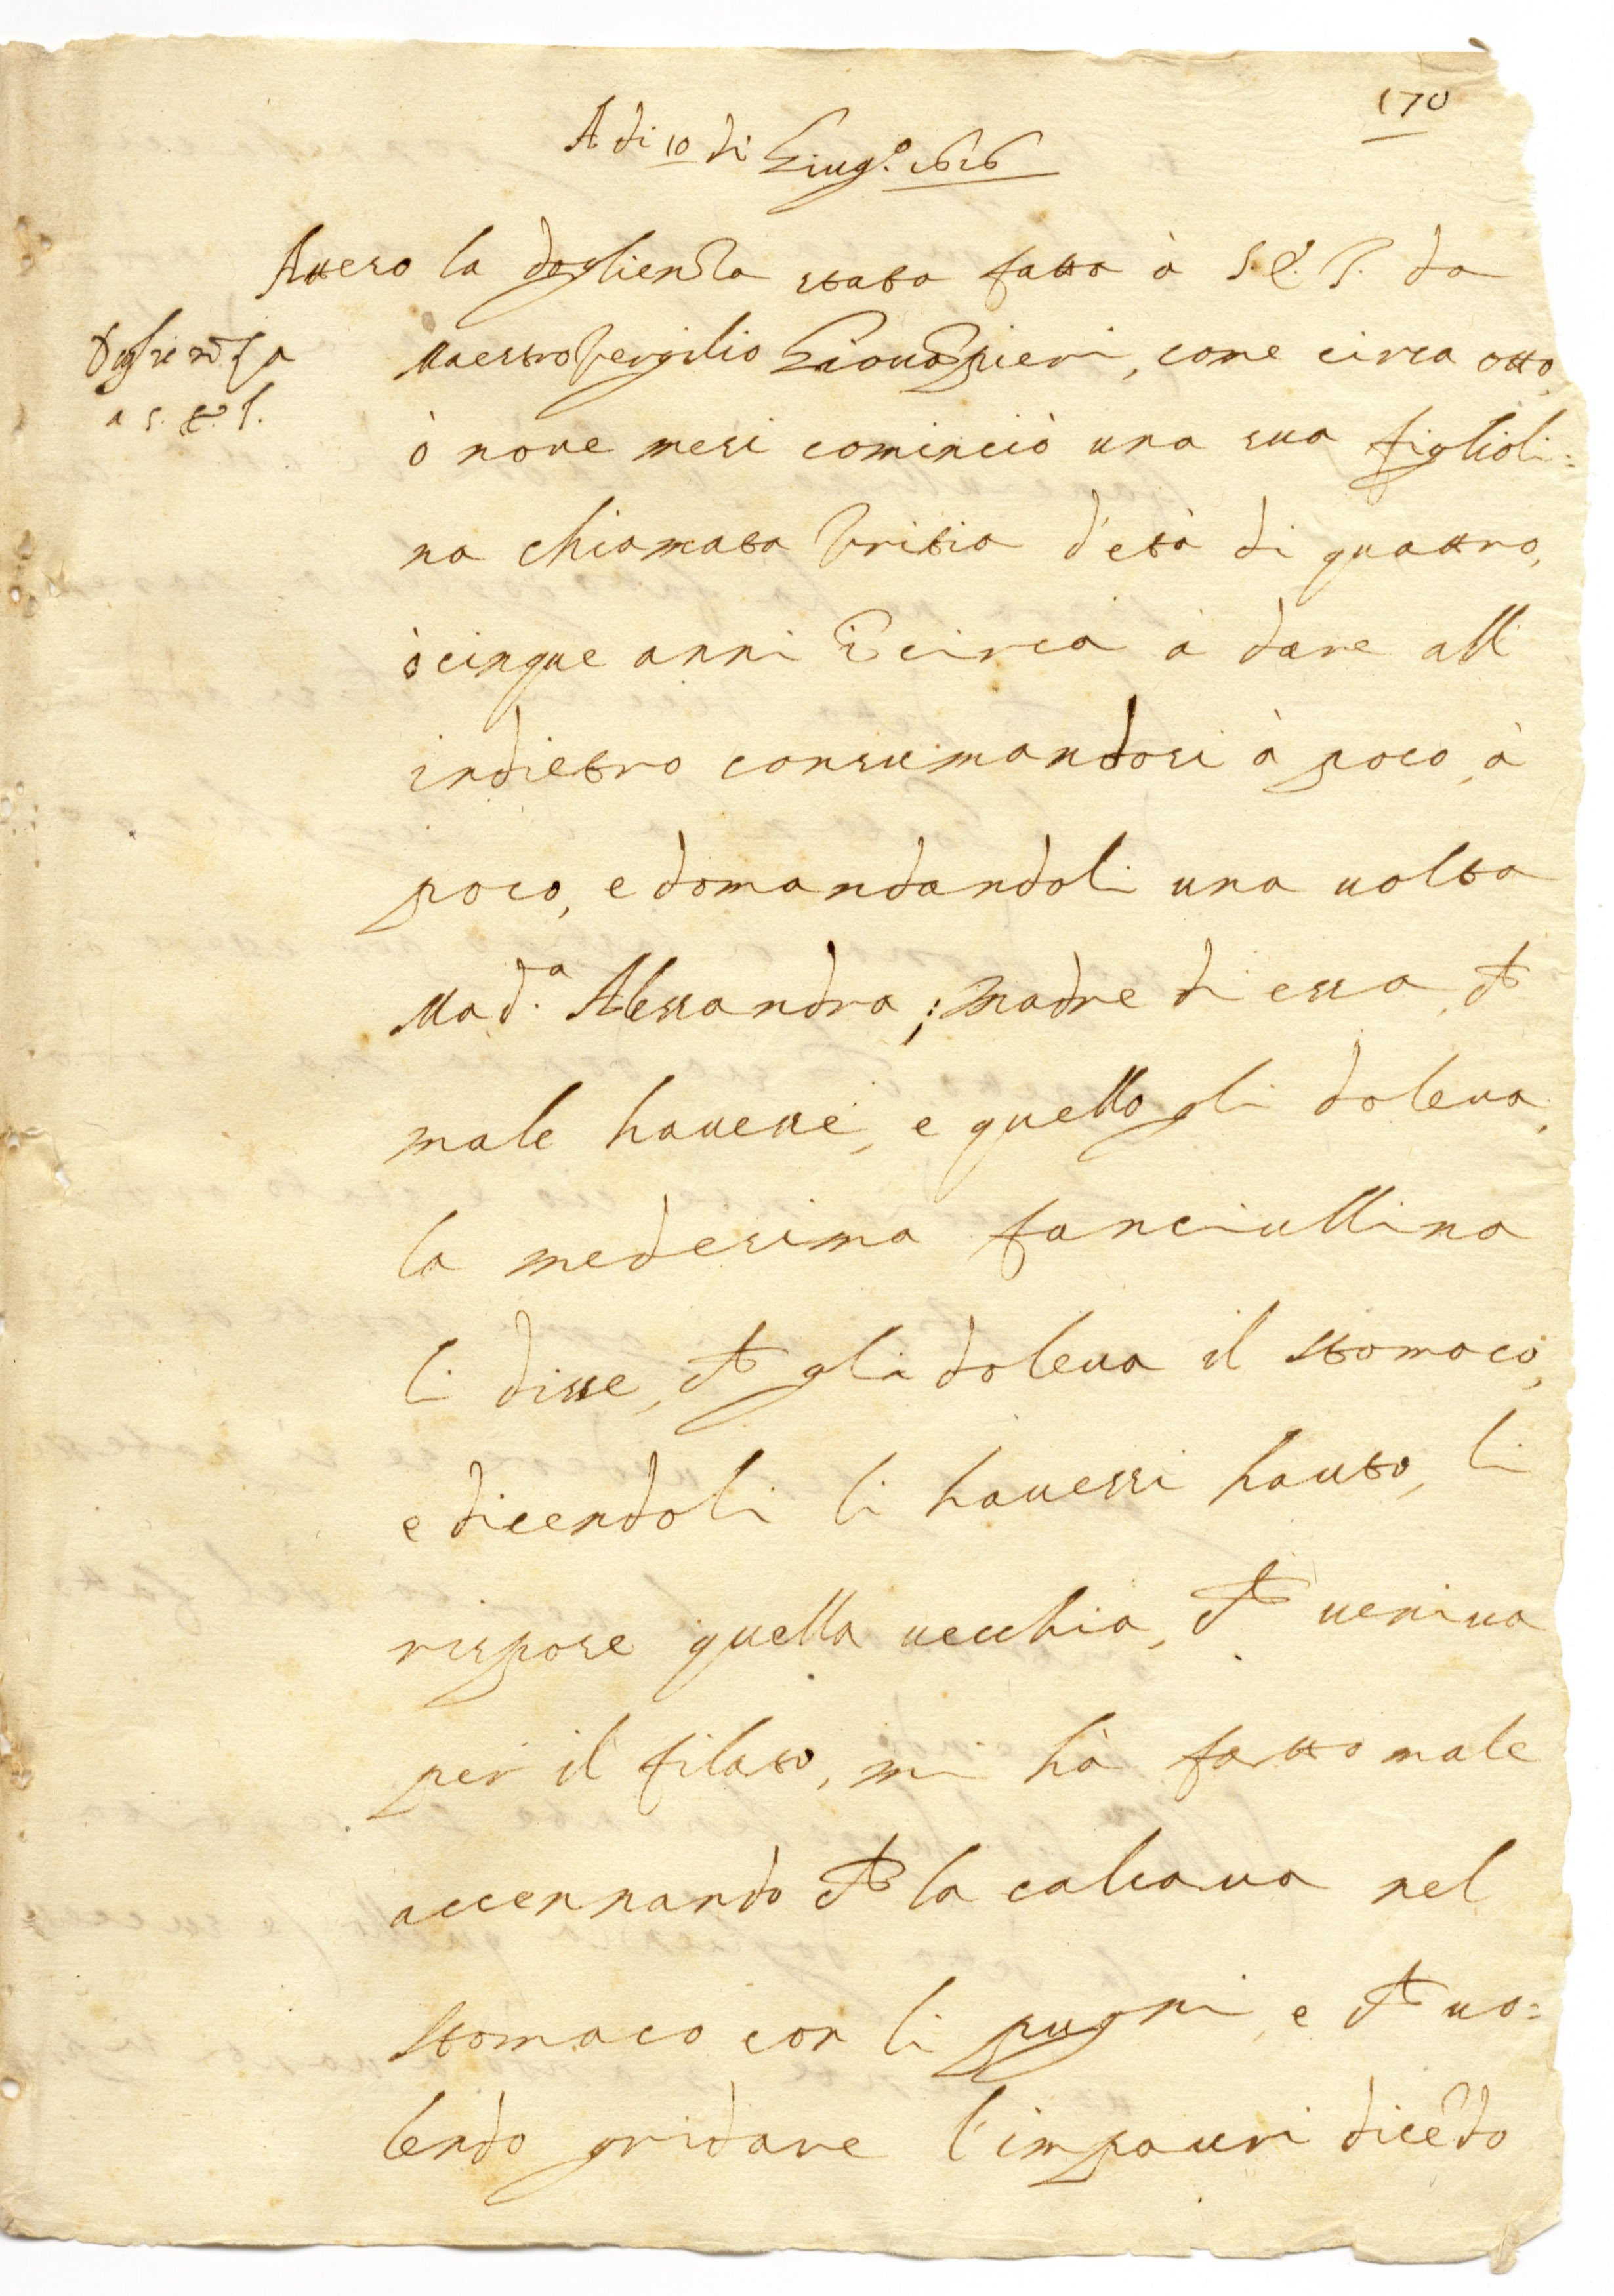 170
A di 10 di Giug.º 1626
Atteso la doglienza stata fatta à S. E. P. da
Doglienza
a S. E. P.
Maestro Vergilio Giovapieri, come circa otto,
ò nove mesi cominciò una sua figlioli=
na chiamata Britia d'età di quattro,
ò cinque anni ĩ circa à dare all
indietro consumandosi à poco, à
poco, e domandandoli una uolta
Mad.ª Alessandra; madre di essa, ch
male hauessi, e quello gli doleua,
la medesima fanciullina
li disse, ch gli doleua il stomaco,
e dicendoli li hauessi hauto, li
rispose quella uecchia, ch ueniua
per il filato, mi hà fatto male
accennando ch la calcaua nel
stomaco con li pugni, e ch uo=
lendo gridare l'impauri dicẽdo